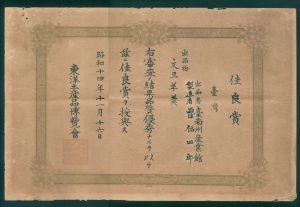 佳良賞
臺灣
出品者 臺南州産業館
製造者 曾 田郎
出品物
文旦羊羹
右審査ノ結果品質優秀ナルヲ認メ
茲ニ佳良賞ヲ授與ス
昭和十四年十一月十六日
東洋土産品博覽會